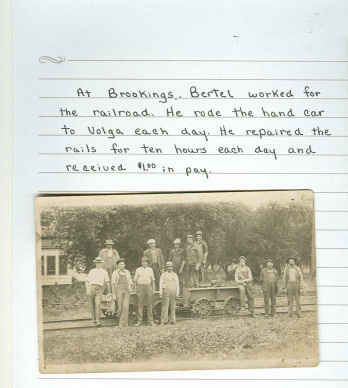 At Brookings, Bertel worked for
the railroad. He rode the hand car
to Volga each day. He repaired the
rails for ten hours each day and
received $1.00 in pay.